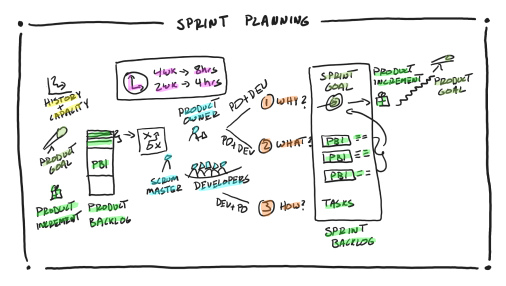 SPRINT PLANNING
4WK → 8HRS
2WK → 4HRS
HISTORY
+
CAPACITY
PRODUCT
GOAL
PRODUCT
INCREMENT
PBI
PRODUCT
BACKLOG
PRODUCT
OWNER
SCRUM
MASTER
DEVELOPERS
PO+DEV
1 WHY?
PO+DEV
2 WHAT?
DEV+PO
3 HOW?
SPRINT
GOAL
PBI
PBI
PBI
TASKS
SPRINT
BACKLOG
PRODUCT
INCREMENT
PRODUCT
GOAL